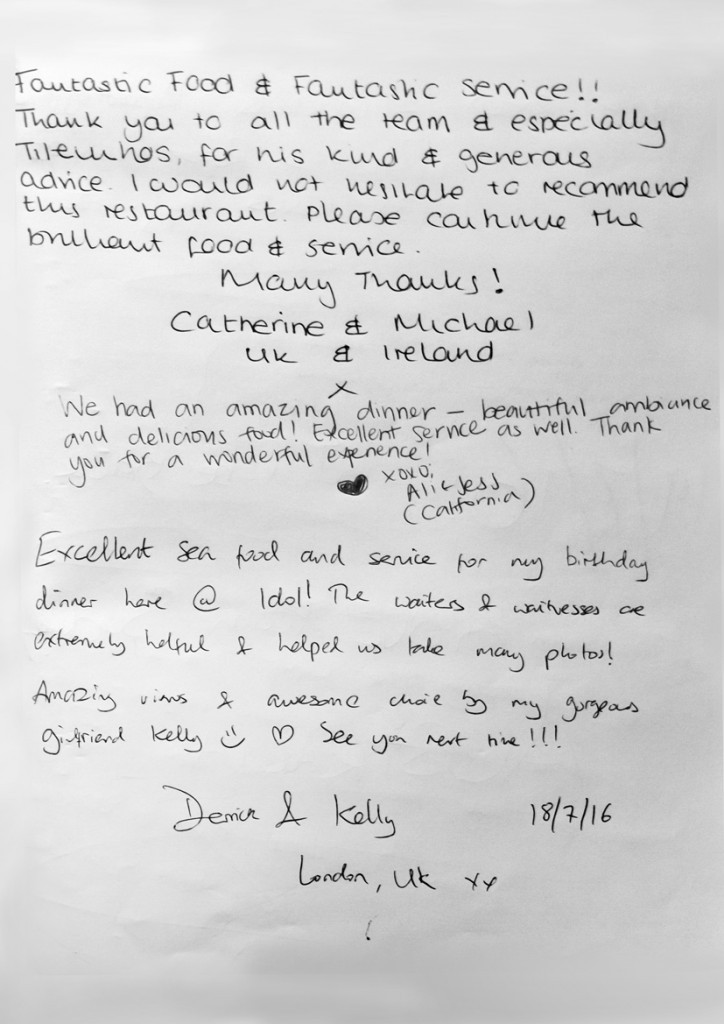 Fantastic Food & Fantastic service!!
Thank you to all the team & especially
Tilemahos, for his kind & generous
advice. I would not hesitate to recommend
this restaurant. Please continue the
brilliant food & service.
Many Thanks!
Catherine & Michael
UK & Ireland
x
We had an amazing dinner – beautiful ambiance
and delicious food! Excellent service as well. Thank
you for a wonderful experience!
♥ xoxo,
Ali & Jess
(California)
Excellent sea food and service for my birthday
dinner here @ Idol! The waiters & waitresses are
extremely helpful & helped us take many photos!
Amazing views & awesome choice by my gorgeous
girlfriend Kelly ☺ ♡ See you next time!!!
Derrick & Kelly 18/7/16
London, UK xx